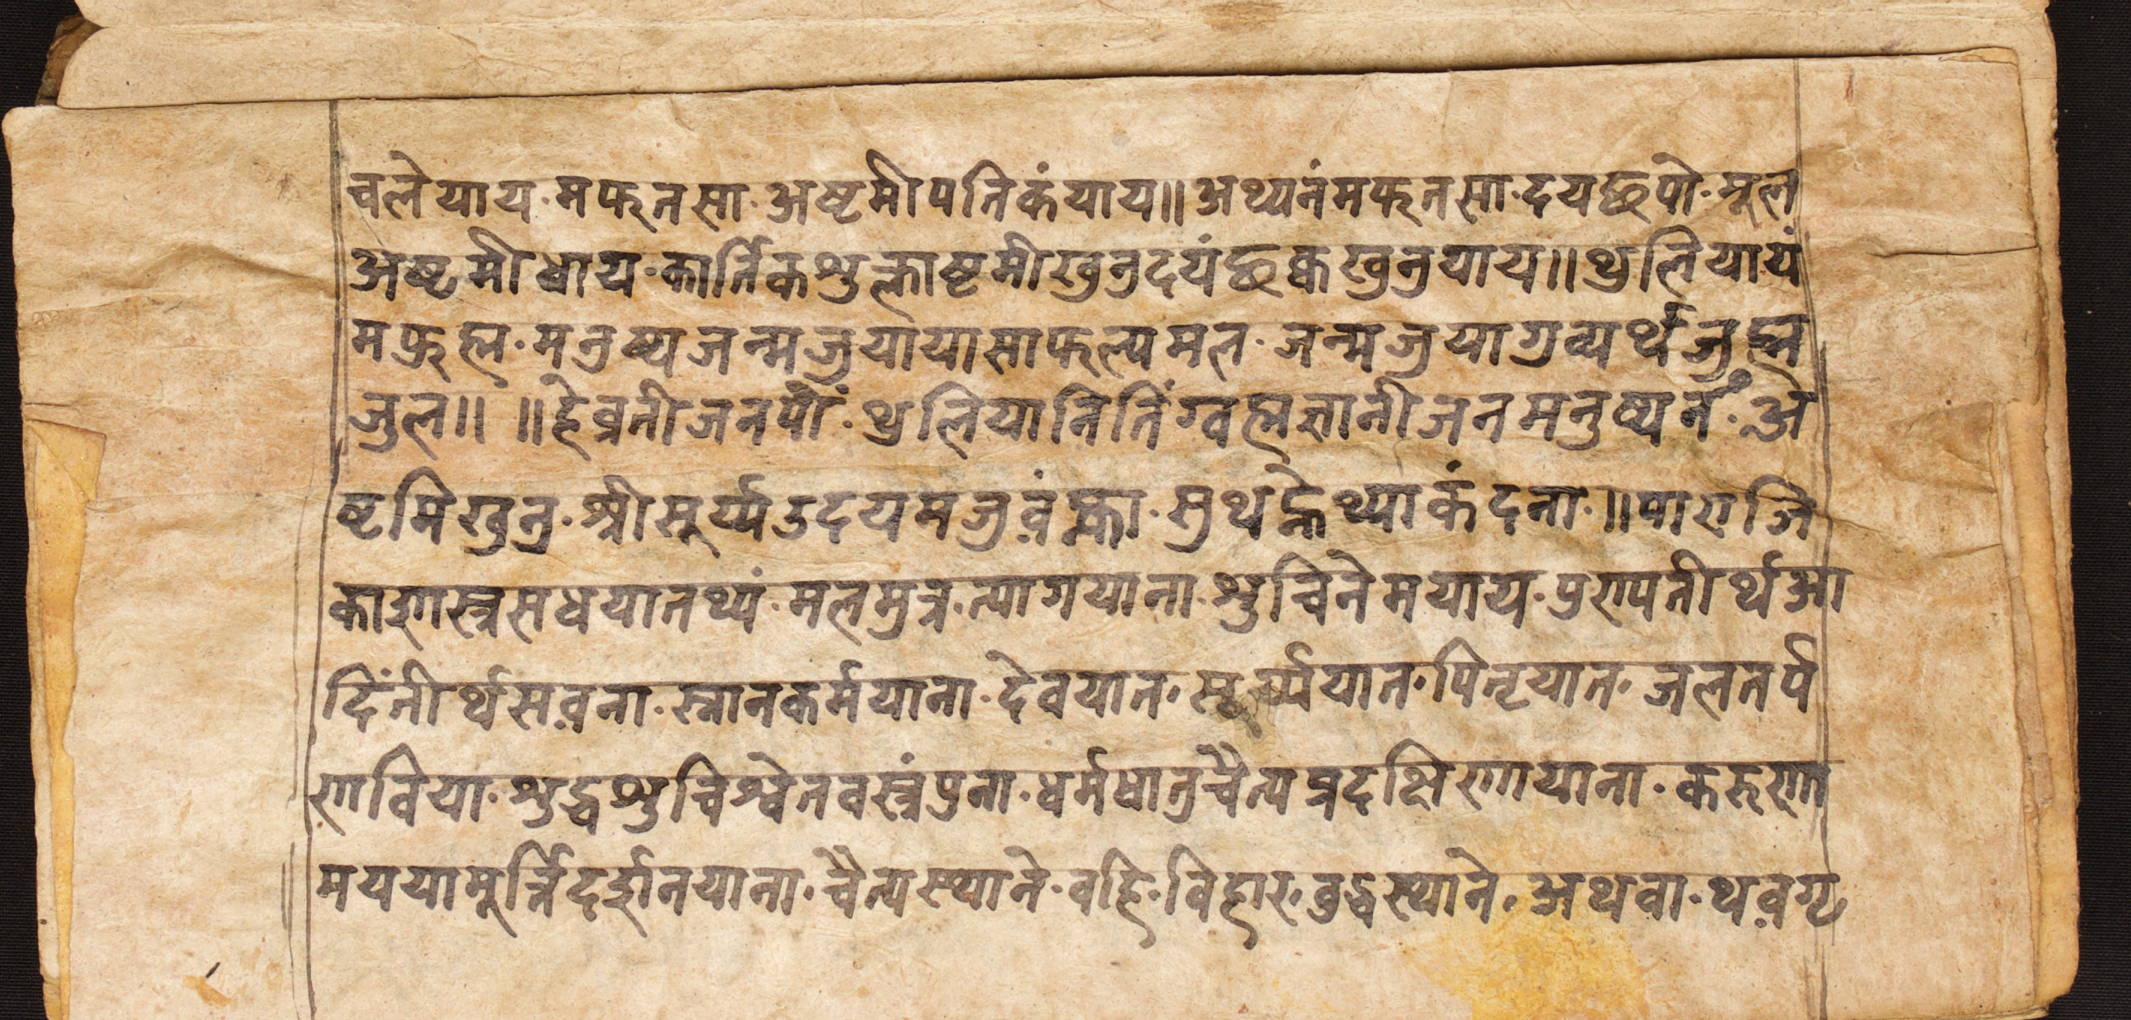 चलेयाय·मफुनसा·अष्टमीपतिकंयाय॥अथ्यनंमफुनसा·दयछपो·मूल
अष्टमीधाय·कार्तिकशुक्लाष्टमीखुनुदयंछक्वखुनुयाय॥थुलियायं
मफुह्म·मनुष्यजन्मजुयायासाफल्यमल·जन्मजुयागुव्यर्थजुह्म
जुल॥ ॥हेव्रतीजनपौं·थुलियानिंतिंग्वह्मज्ञानीजनमनुष्यनं·अ
ष्टमिखुनु·श्रीसूर्य्यउदयमजुव़ंह्का·सुथह्नेथ्याकंदना·॥पाराजि
काशास्त्रसधयातथ्यं·मलमुत्र·त्यागयाना·शुचिनेमयाय·पुरापतीर्थआ
दिंतीर्थसव़ना·स्नानकर्मयाना·देवयात·सूर्य्ययात·पितृयात·जलतर्प
णविया·शुद्धशुचिश्वेतवस्त्रंपुना·धर्मधातुचैत्यप्रदक्षिणायाना·करुणा
मययामूर्त्तिदर्शनयाना·चैत्यस्थाने·वहि·विहार·बुद्धस्थाने·अथवा·थव़गृ